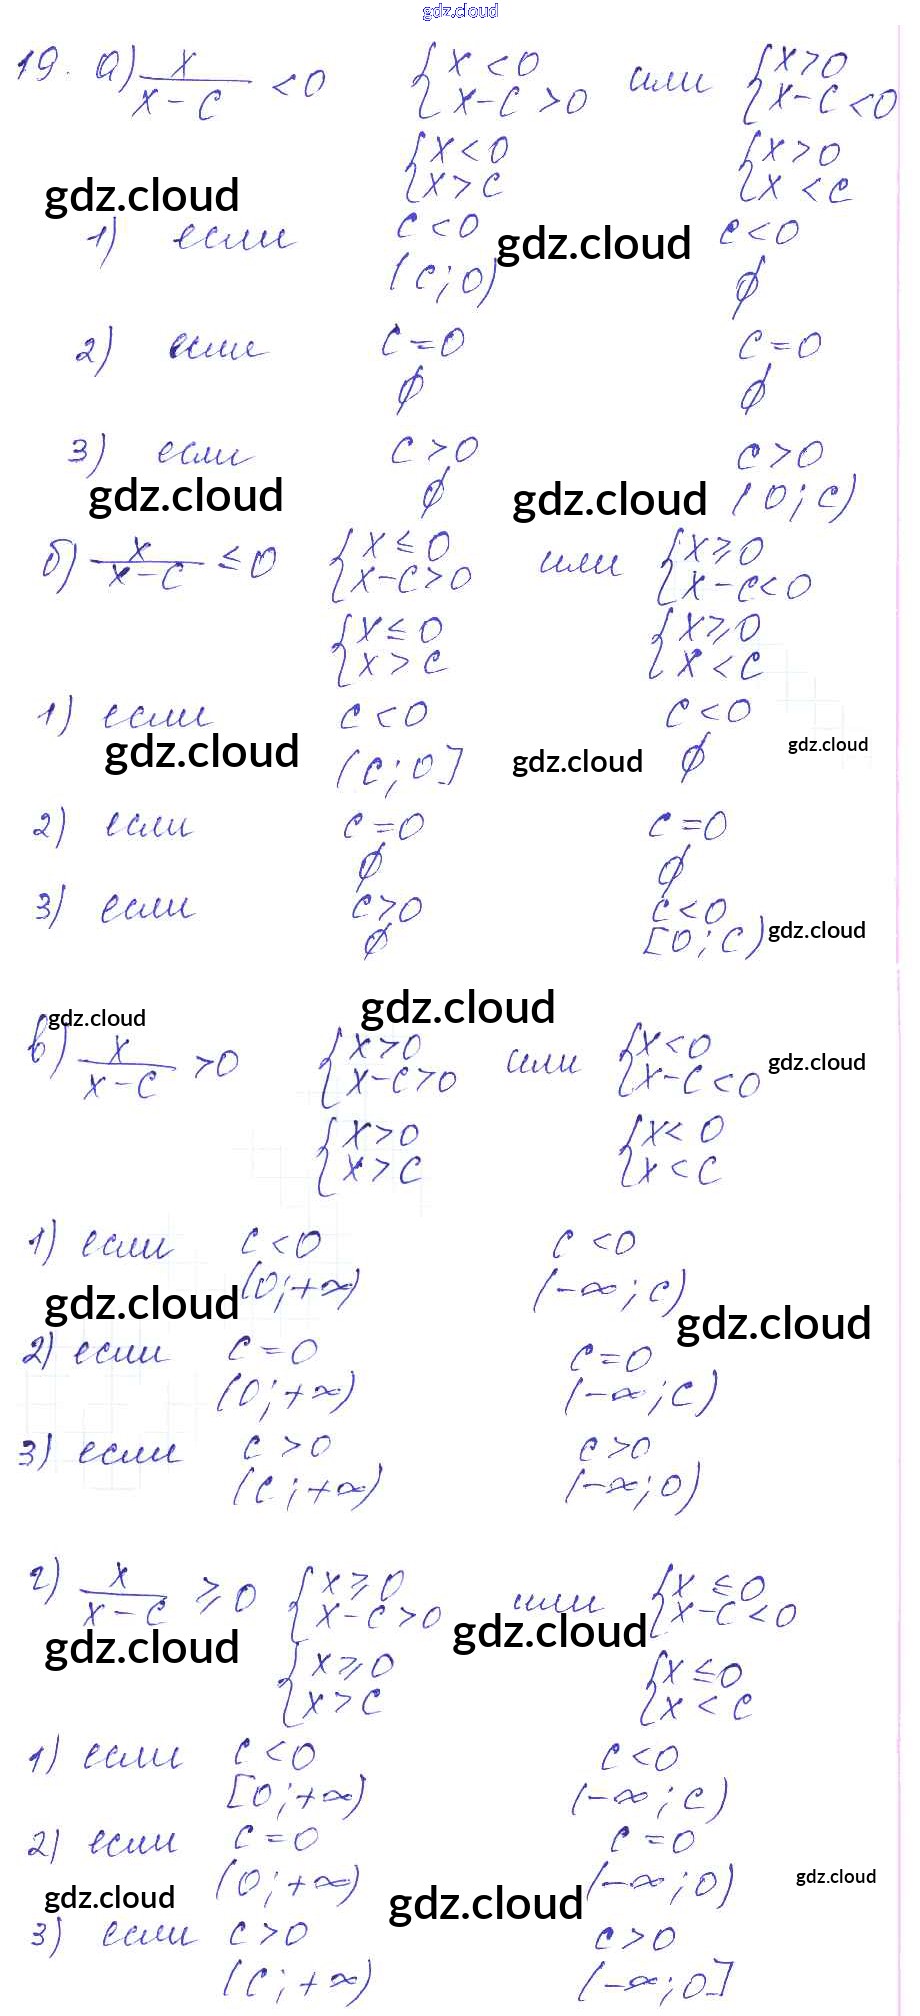 gdz.cloud
19. а) x/(x-c) < 0 { x < 0 или { x > 0
{ x-c > 0 { x-c < 0
{ x < 0 { x > 0
gdz.cloud { x > c { x < c
1) если c < 0 gdz.cloud c < 0
(c; 0) ∅
2) если c = 0 c = 0
∅ ∅
3) если c > 0 c > 0
gdz.cloud ∅ gdz.cloud (0; c)
б) x/(x-c) ≤ 0 { x ≤ 0 или { x ≥ 0
{ x-c > 0 { x-c < 0
{ x ≤ 0 { x ≥ 0
{ x > c { x < c
1) если c < 0 c < 0
gdz.cloud (c; 0] gdz.cloud ∅ gdz.cloud
2) если c = 0 c = 0
∅ ∅
3) если c > 0 c < 0
∅ [0; c) gdz.cloud
gdz.cloud gdz.cloud
в) x/(x-c) > 0 { x > 0 или { x < 0 gdz.cloud
{ x-c > 0 { x-c < 0
{ x > 0 { x < 0
{ x > c { x < c
1) если c < 0 c < 0
gdz.cloud (0; +∞) (-∞; c) gdz.cloud
2) если c = 0 c = 0
(0; +∞) (-∞; c)
3) если c > 0 c > 0
(c; +∞) (-∞; 0)
г) x/(x-c) ≥ 0 { x ≥ 0 или { x ≤ 0
{ x-c > 0 { x-c < 0
gdz.cloud gdz.cloud
{ x ≥ 0 { x ≤ 0
{ x > c { x < c
1) если c < 0 c < 0
[0; +∞) (-∞; c)
2) если c = 0 c = 0
gdz.cloud (0; +∞) gdz.cloud (-∞; 0) gdz.cloud
3) если c > 0 c > 0
(c; +∞) (-∞; 0]